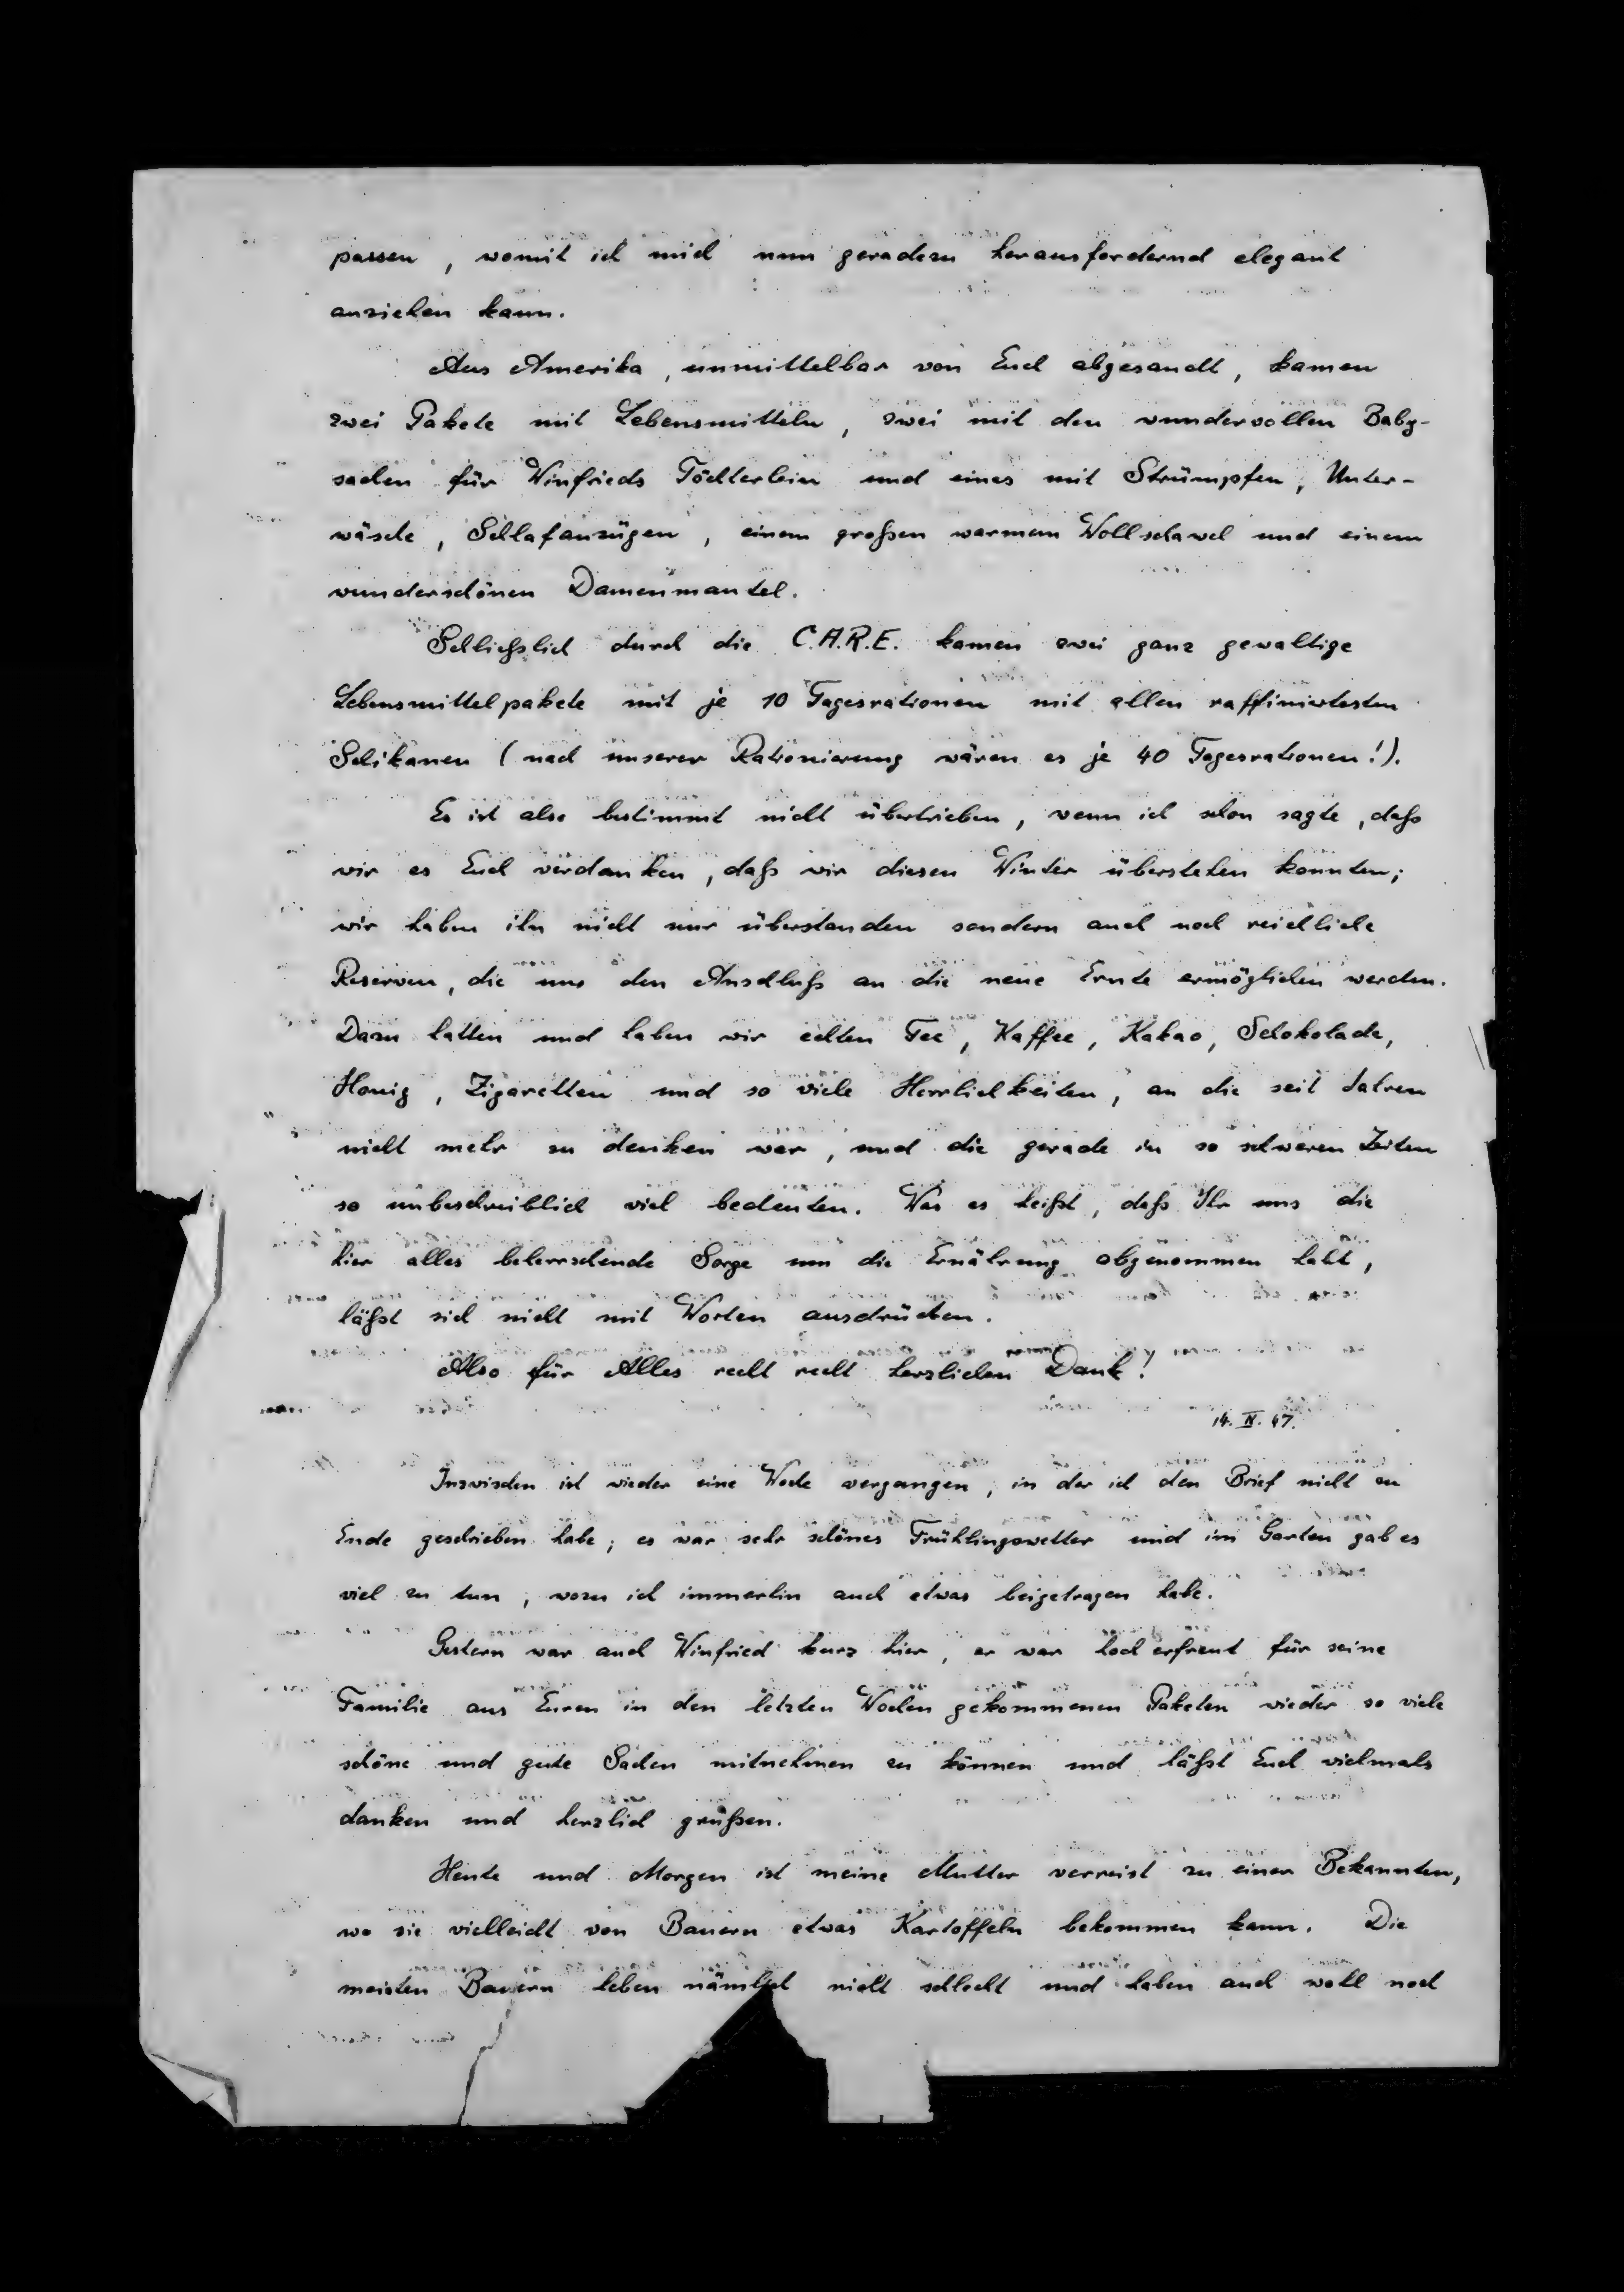 passen, womit ich mich nun geradezu herausfordernd elegant
anziehen kann.
Aus Amerika, unmittelbar von Euch abgesandt, kamen
zwei Pakete mit Lebensmitteln, zwei mit den wundervollen Baby-
sachen für Winfrieds Töchterlein und eines mit Strümpfen, Unter-
wäsche, Schlafanzügen, einem großen warmen Wollschawel und einem
wunderschönen Damenmantel.
Schließlich durch die C.A.R.E. kamen zwei ganz gewaltige
Lebensmittelpakete mit je 10 Tagesrationen mit allen raffiniertesten
Schikanen (nach unserer Rationierung wären es je 40 Tagesrationen!).
Es ist also bestimmt nicht übertrieben, wenn ich schon sagte, daß
wir es Euch verdanken, daß wir diesen Winter überstehen konnten;
wir haben ihn nicht nur überstanden sondern auch noch reichliche
Reserven, die uns den Anschluß an die neue Ernte ermöglichen werden.
Dazu hatten und haben wir echten Tee, Kaffee, Kakao, Schokolade,
Honig, Zigaretten und so viele Herrlichkeiten, an die seit Jahren
nicht mehr zu denken war, und die gerade in so schweren Zeiten
so unbeschreiblich viel bedeuten. Was es heißt, daß Ihr uns die
hier alles beherrschende Sorge um die Ernährung abgenommen habt,
läßt sich nicht mit Worten ausdrücken.
Also für Alles recht recht herzlichen Dank!
14. IV. 47.
Inzwischen ist wieder eine Woche vergangen, in der ich den Brief nicht zu
Ende geschrieben habe; es war sehr schönes Frühlingswetter und im Garten gab es
viel zu tun, wozu ich immerhin auch etwas beigetragen habe.
Gestern war auch Winfried kurz hier, er war hoch erfreut für seine
Familie aus Euren in den letzten Wochen gekommenen Paketen wieder so viele
schöne und gute Sachen mitnehmen zu können und läßt Euch vielmals
danken und herzlich grüßen.
Heute und Morgen ist meine Mutter verreist zu einer Bekannten,
wo sie vielleicht von Bauern etwas Kartoffeln bekommen kann. Die
meisten Bauern leben nämlich nicht schlecht und haben auch wohl noch